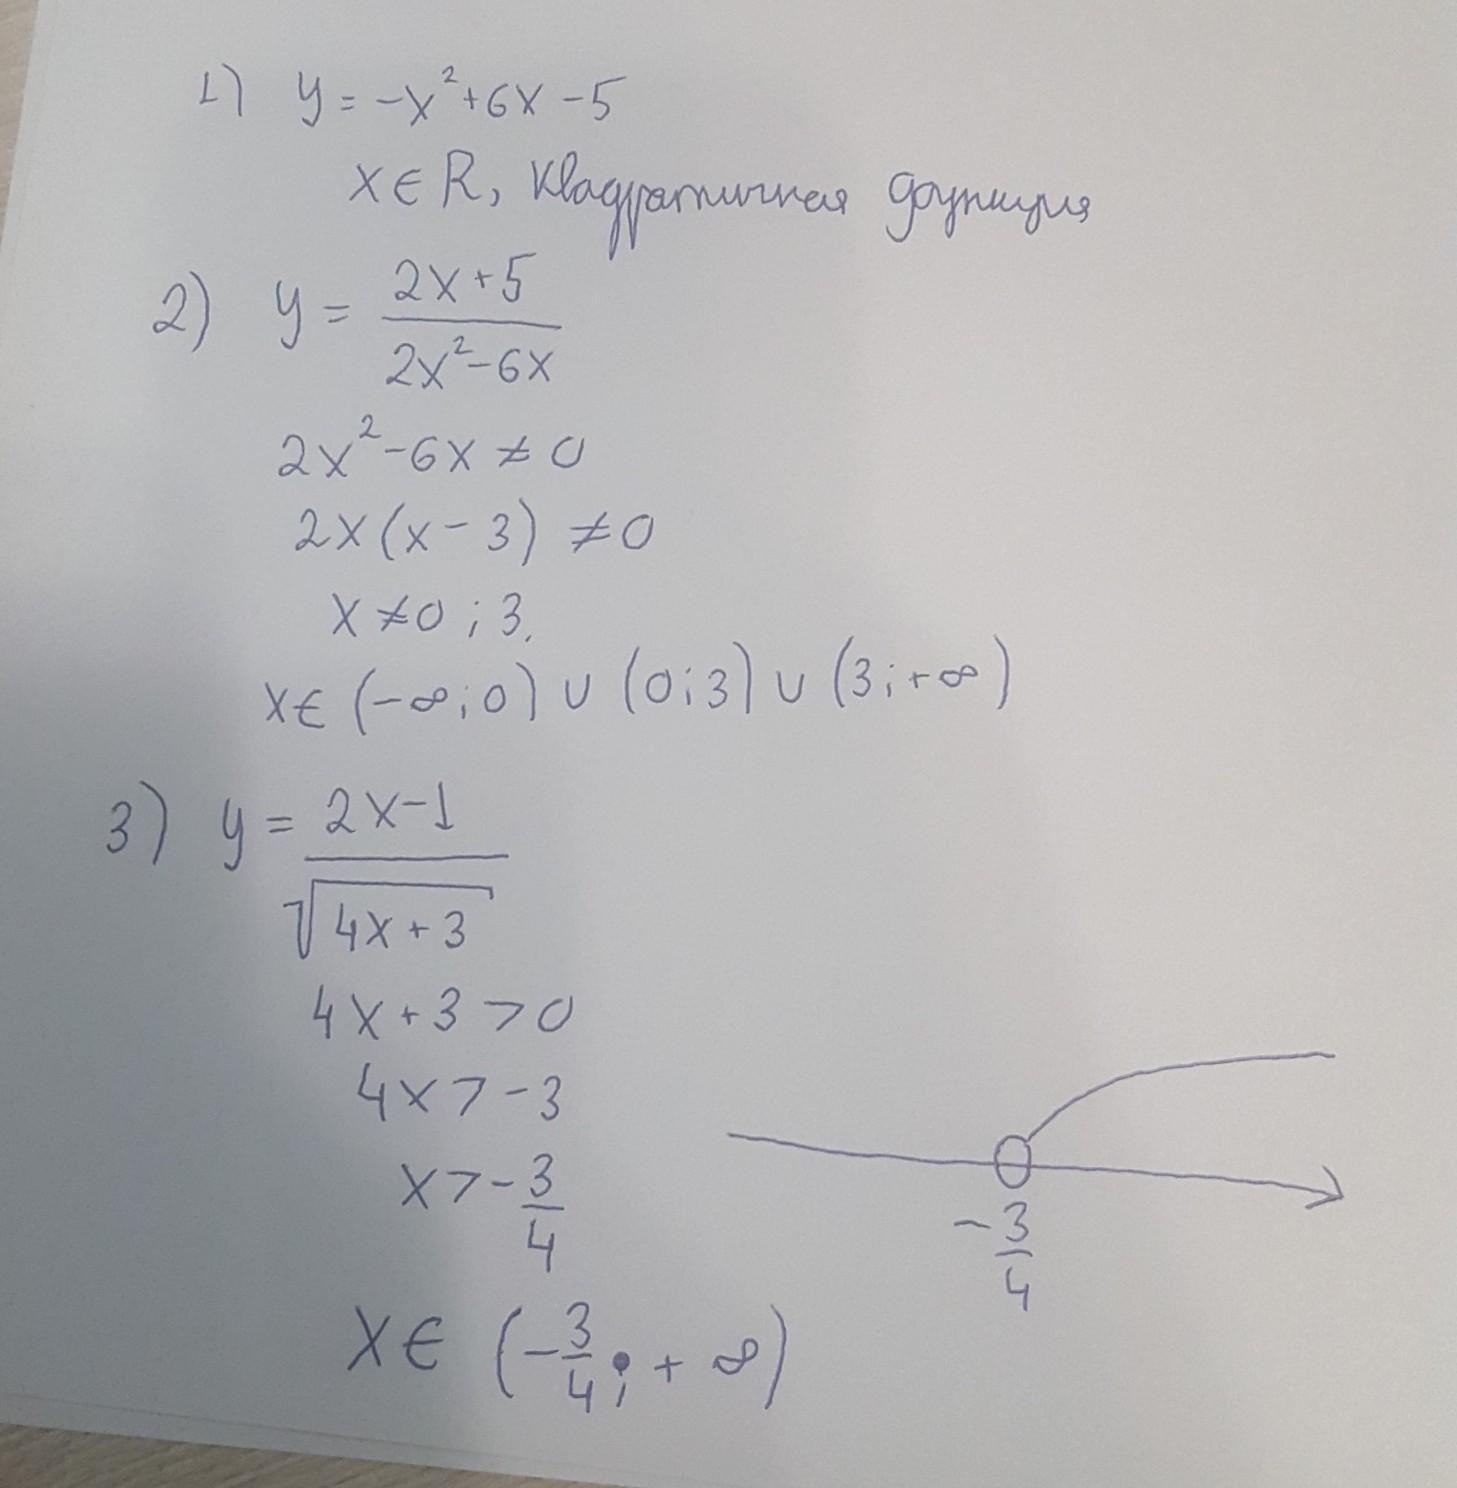 1) y = -x² + 6x - 5
x ∈ R, квадратичная функция
2) y = (2x+5)/(2x²-6x)
2x² - 6x ≠ 0
2x(x - 3) ≠ 0
x ≠ 0 ; 3.
x ∈ (-∞; 0) ∪ (0; 3) ∪ (3; +∞)
3) y = (2x-1)/√(4x+3)
4x + 3 > 0
4x > -3
x > -3/4
-3/4
x ∈ (-3/4; +∞)